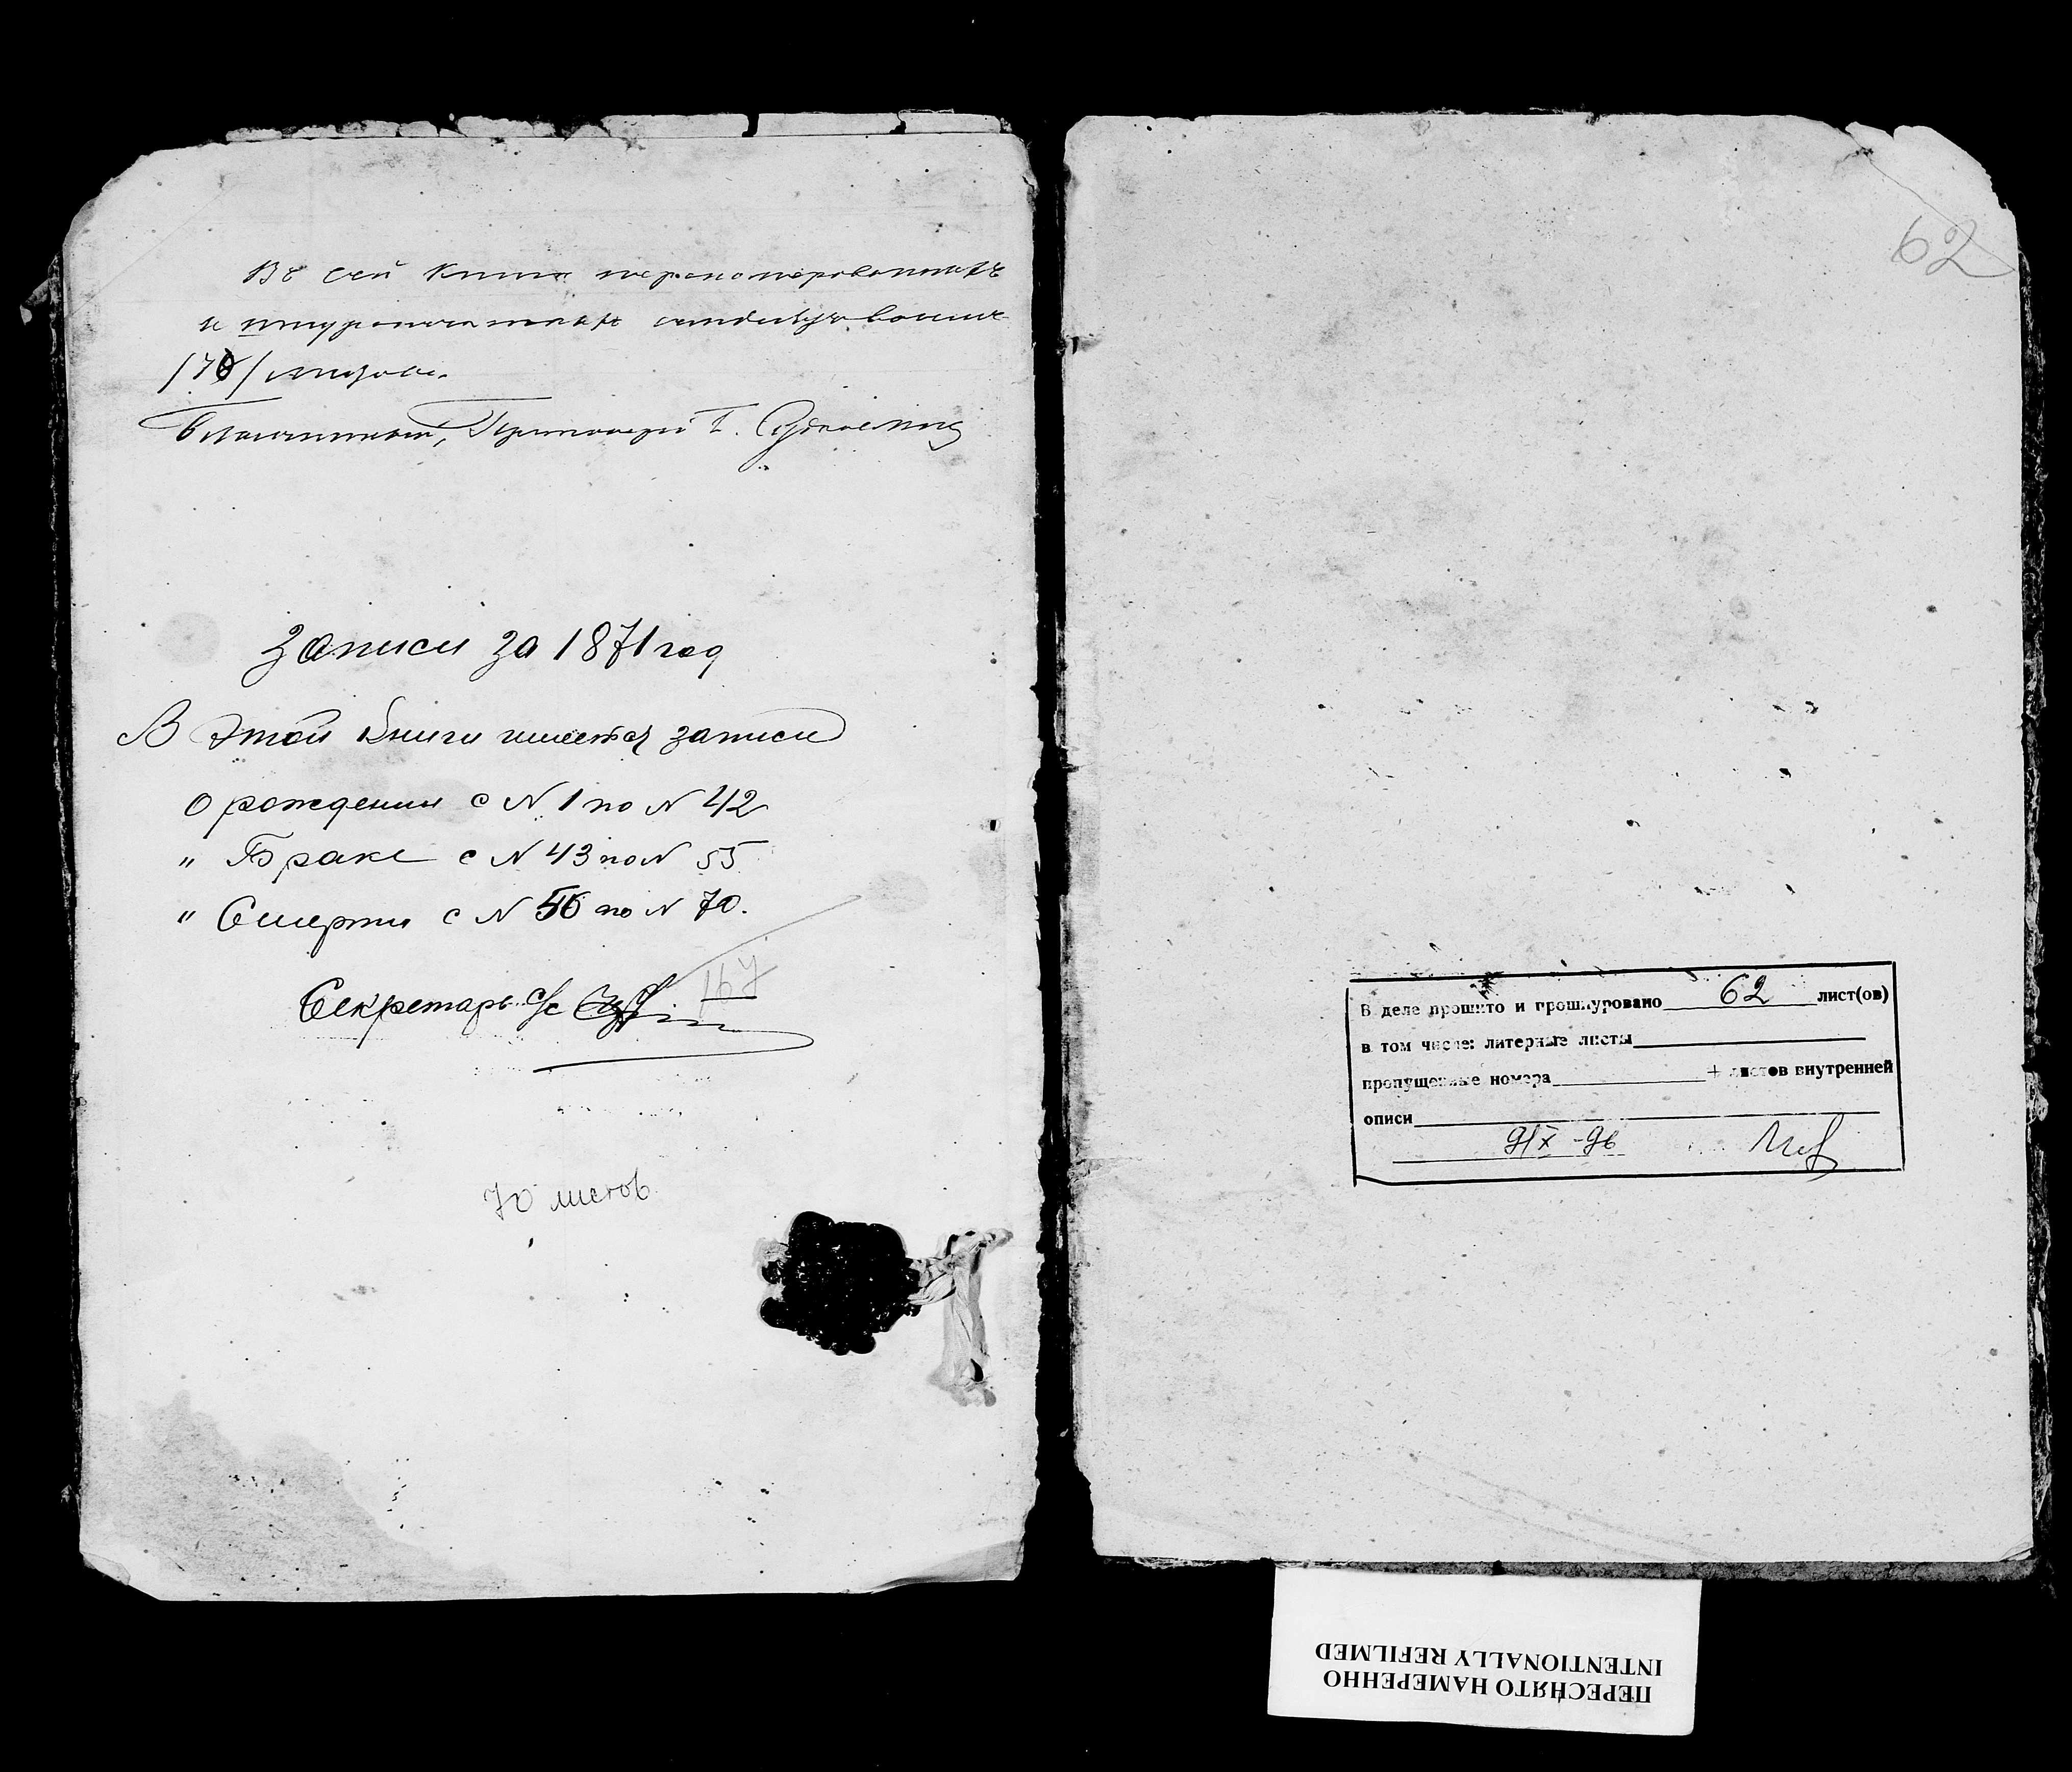 Въ сей книгѣ перенумерованныхъ
и шнурованныхъ
/70/ листовъ.
Благочинный, Протоіерей
Записи за 1871 год
В этой книги имеется записи
о рождении с N 1 по N 42
" Браке с N 43 по N 55
" Смерти с N 56 по N 70.
167
Секретарь с/с
70 листов
62
В деле прошито и прошнуровано 62 лист(ов)
в том числе: литерные листы
пропущенные номера + листов внутренней
описи
9/X-96
ПЕРЕСНЯТО НАМЕРЕННО
INTENTIONALLY REFILMED